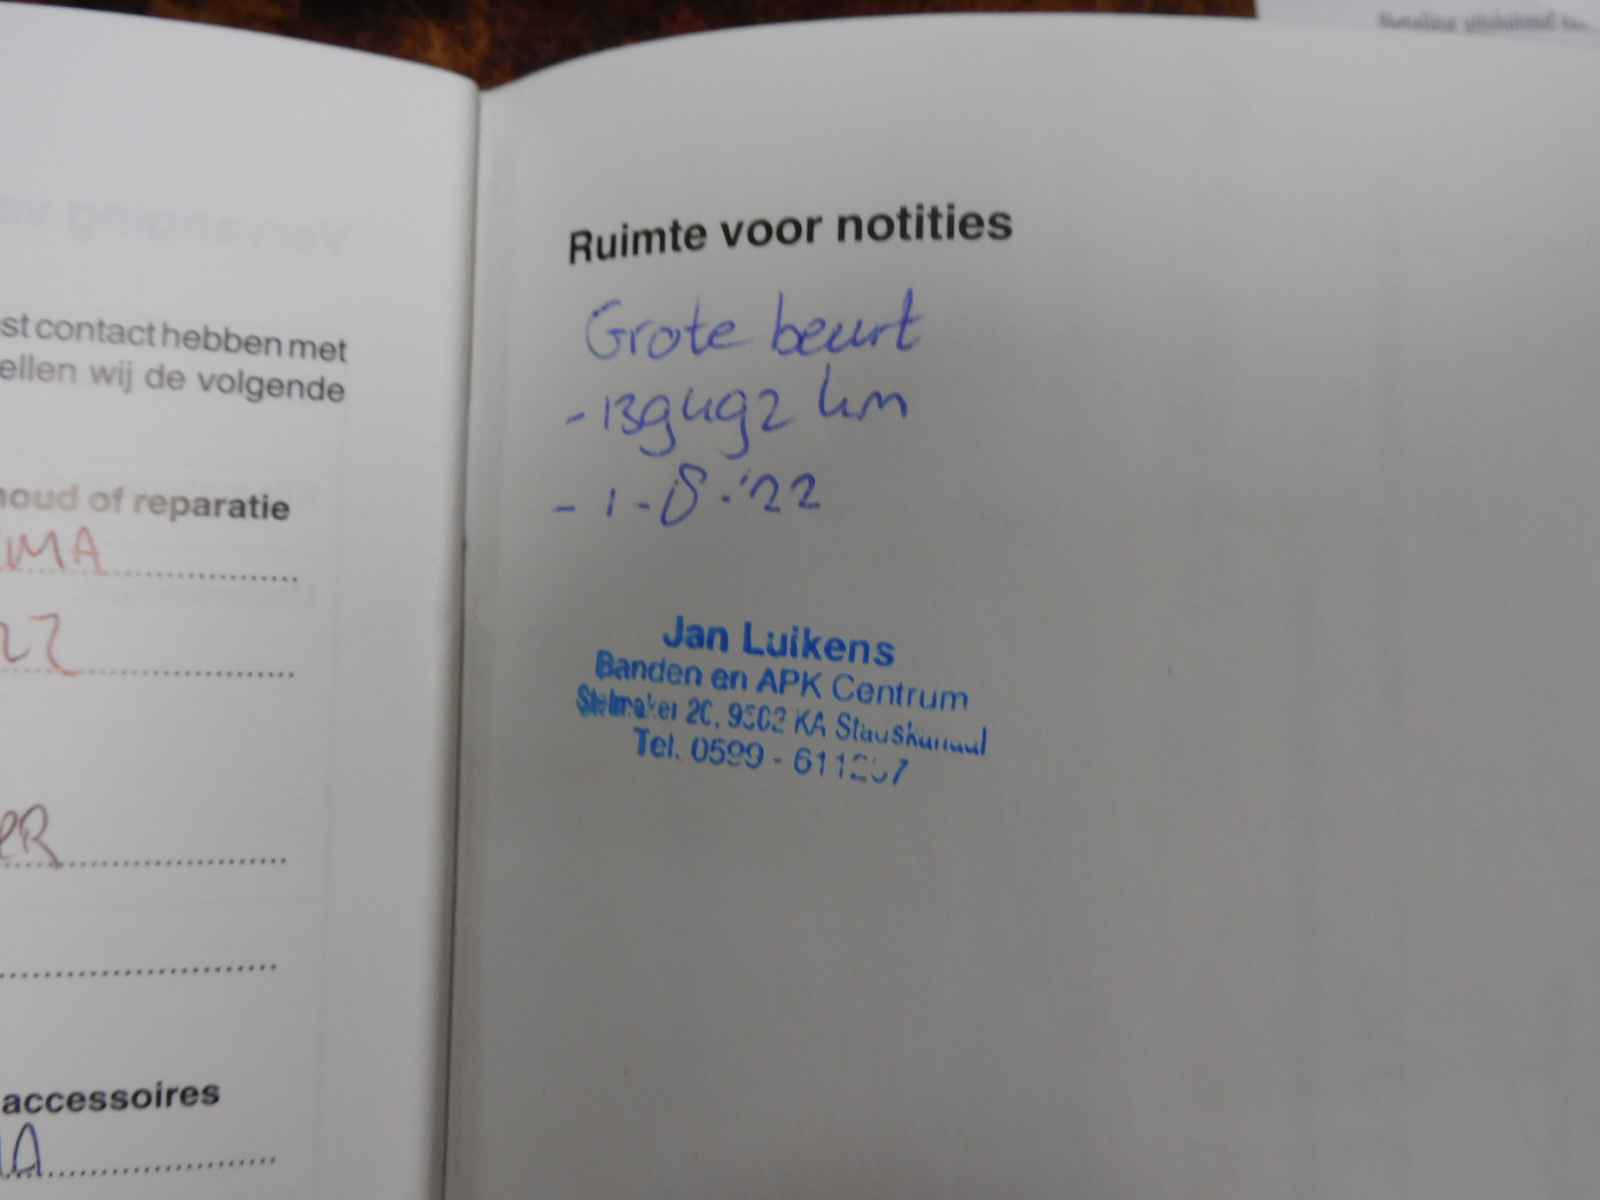 st contact hebben met
ellen wij de volgende
houd of reparatie
MA
22
ER
accessoires
A
Ruimte voor notities
Grote beurt
- 139492 km
- 1-8-'22
Jan Luikens
Banden en APK Centrum
20, 9502 KA Stadskanaal
Tel. 0599 -